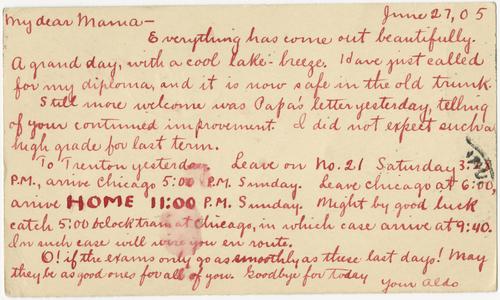 My dear Mama— June 27, 05
Everything has come out beautifully.
A grand day, with a cool lake-breeze. Have just called
for my diploma, and it is now safe in the old trunk.
Still more welcome was Papa's letter yesterday, telling
of your continued improvement. I did not expect such a
high grade for last term.
To Trenton yesterday. Leave on No. 21 Saturday
P.M., arrive Chicago 5:00 P.M. Sunday. Leave Chicago at 6:00,
arrive HOME 11:00 P.M. Sunday. Might by good luck
catch 5:00 o'clock train at Chicago, in which case arrive at 9:40.
In such case will wire you en route.
O! if the exams only go as smoothly as these last days! May
they be as good ones for all of you. Goodbye for today
Your Aldo